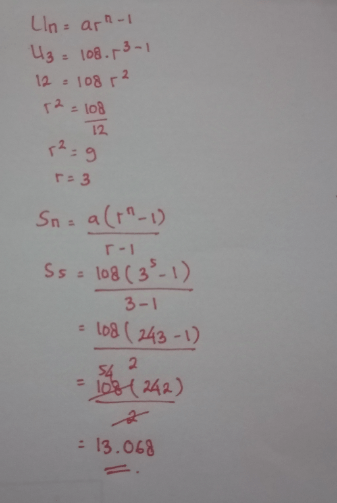 Un = ar^n-1
U3 = 108.r^3-1
12 = 108 r^2
r^2 = 108/12
r^2 = 9
r = 3
Sn = a(r^n-1)/r-1
S5 = 108(3^5-1)/3-1
= 108(243-1)/2
= 54 108(242)/2
= 13.068